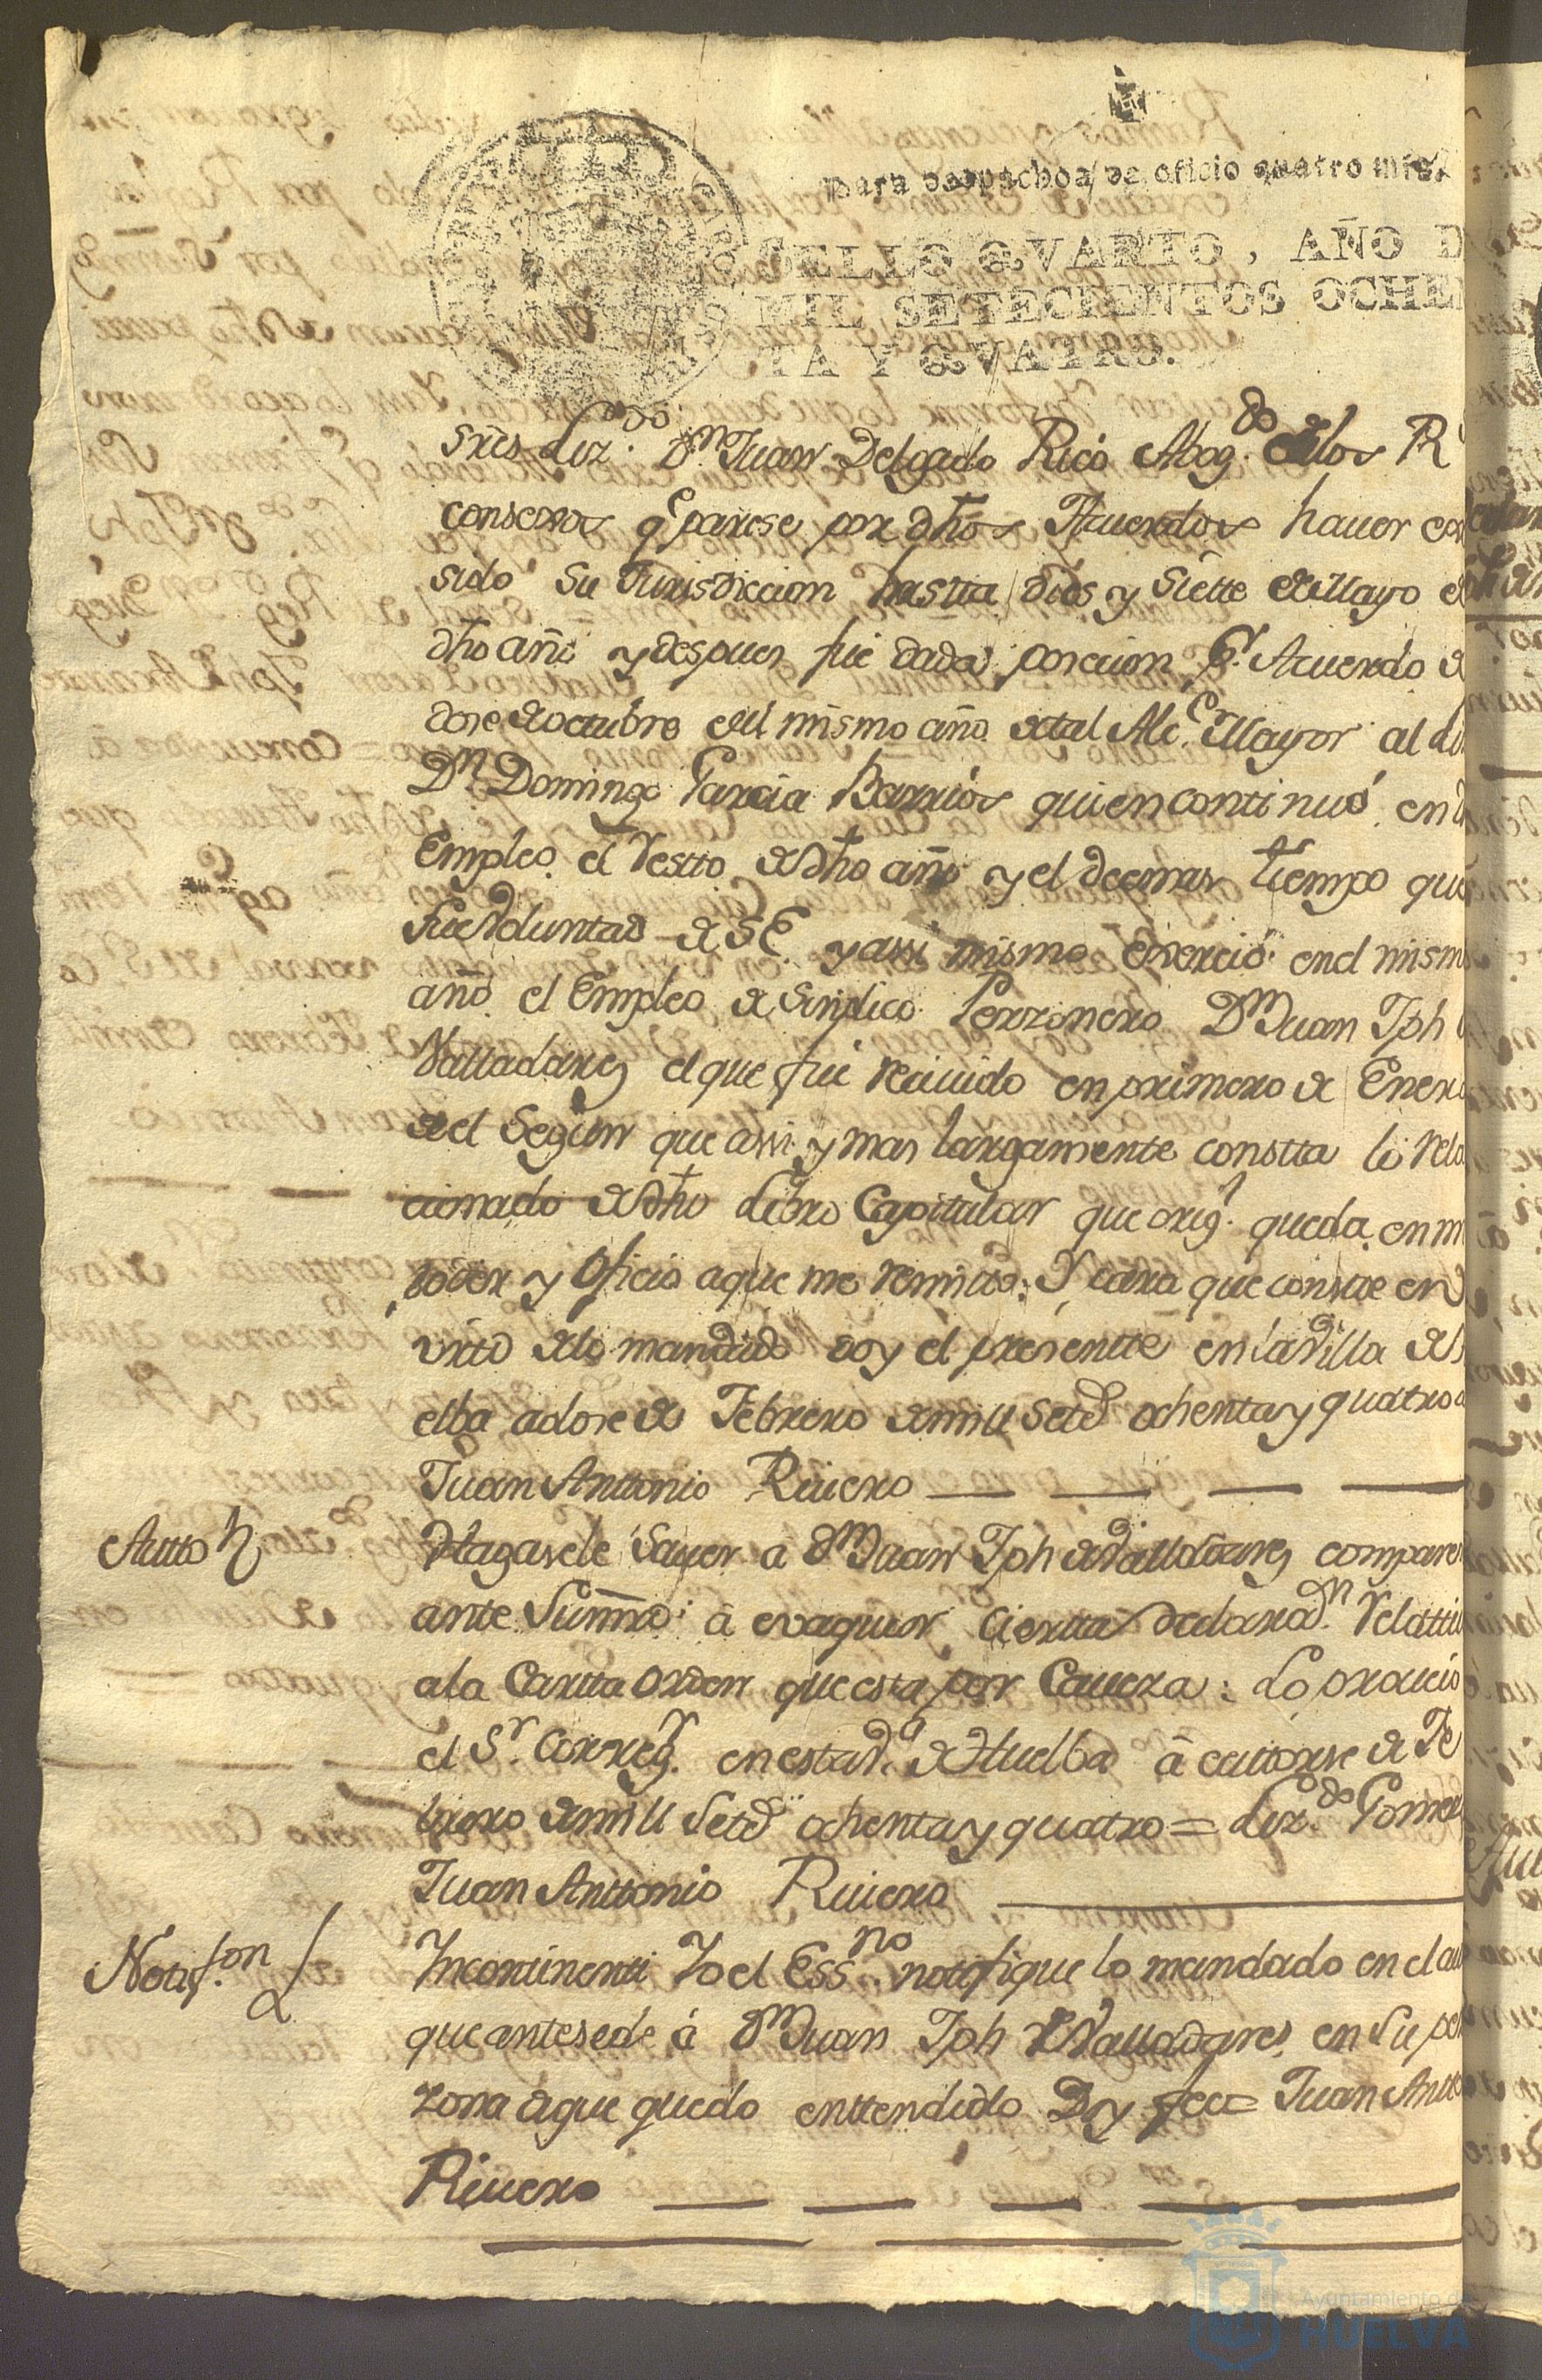 para despachos de oficio quatro mrs.
SELLO QVARTO, AÑO D
MIL SETECIENTOS OCHEN
TA Y QVATRO.
sres Liz.do Dn Juan Delgado Rico Abog.do de los R
consexos qe parese por dhos Acuerdos hauer
sido su Jurisdiccion hastta dies y siette de Mayo de
dho año y despues fue dada posecion pr. Acuerdo de
dose de octubre del mismo año de tal Alc.e Mayor al Li
Dn Domingo Garcia Barrios quien continuó en d
Empleo el Restto de dho año y el decmas tiempo que
fue Voluntad de S E. y assi mismo exerció en el mism
año el Empleo de Sindico Perzonero Dn Juan Jph
Valladares el que fue reciuido en primero de Enero
de el Segun que assi y mas largamente constta lo rela
cionado de dho Libro Capitular que orig.l queda en m
poder y Oficio a que me remito: Y para que conste en
virtd de lo mandado doy el presentte en la Villa de H
elba a dose de Febrero de mill setes ochenta y quatro a
Juan Anttonio Riuero
Autto
Hagasele Sauer a Dn Juan Jph de Valladares compares
ante Su mrd: a evaquar ciertta declarazn. Relatti
a la Cartta orden que esta por Caueza: Lo proueio
el Sr. Correg.r en esta V.a de Huelba á cattorse de Fe
brero de mill Setes ochenta y quatro = Liz.do Gomez
Juan Anttonio Riuero
Notif.on
Yncontinenti Yo el Ess.no notifique lo mandado en el au
que antesede á Dn Juan Jph de Valladares en su per
zona de que quedo enttendido Doy fee = Juan Antto
Riuero
Ayuntamiento de
HUELVA